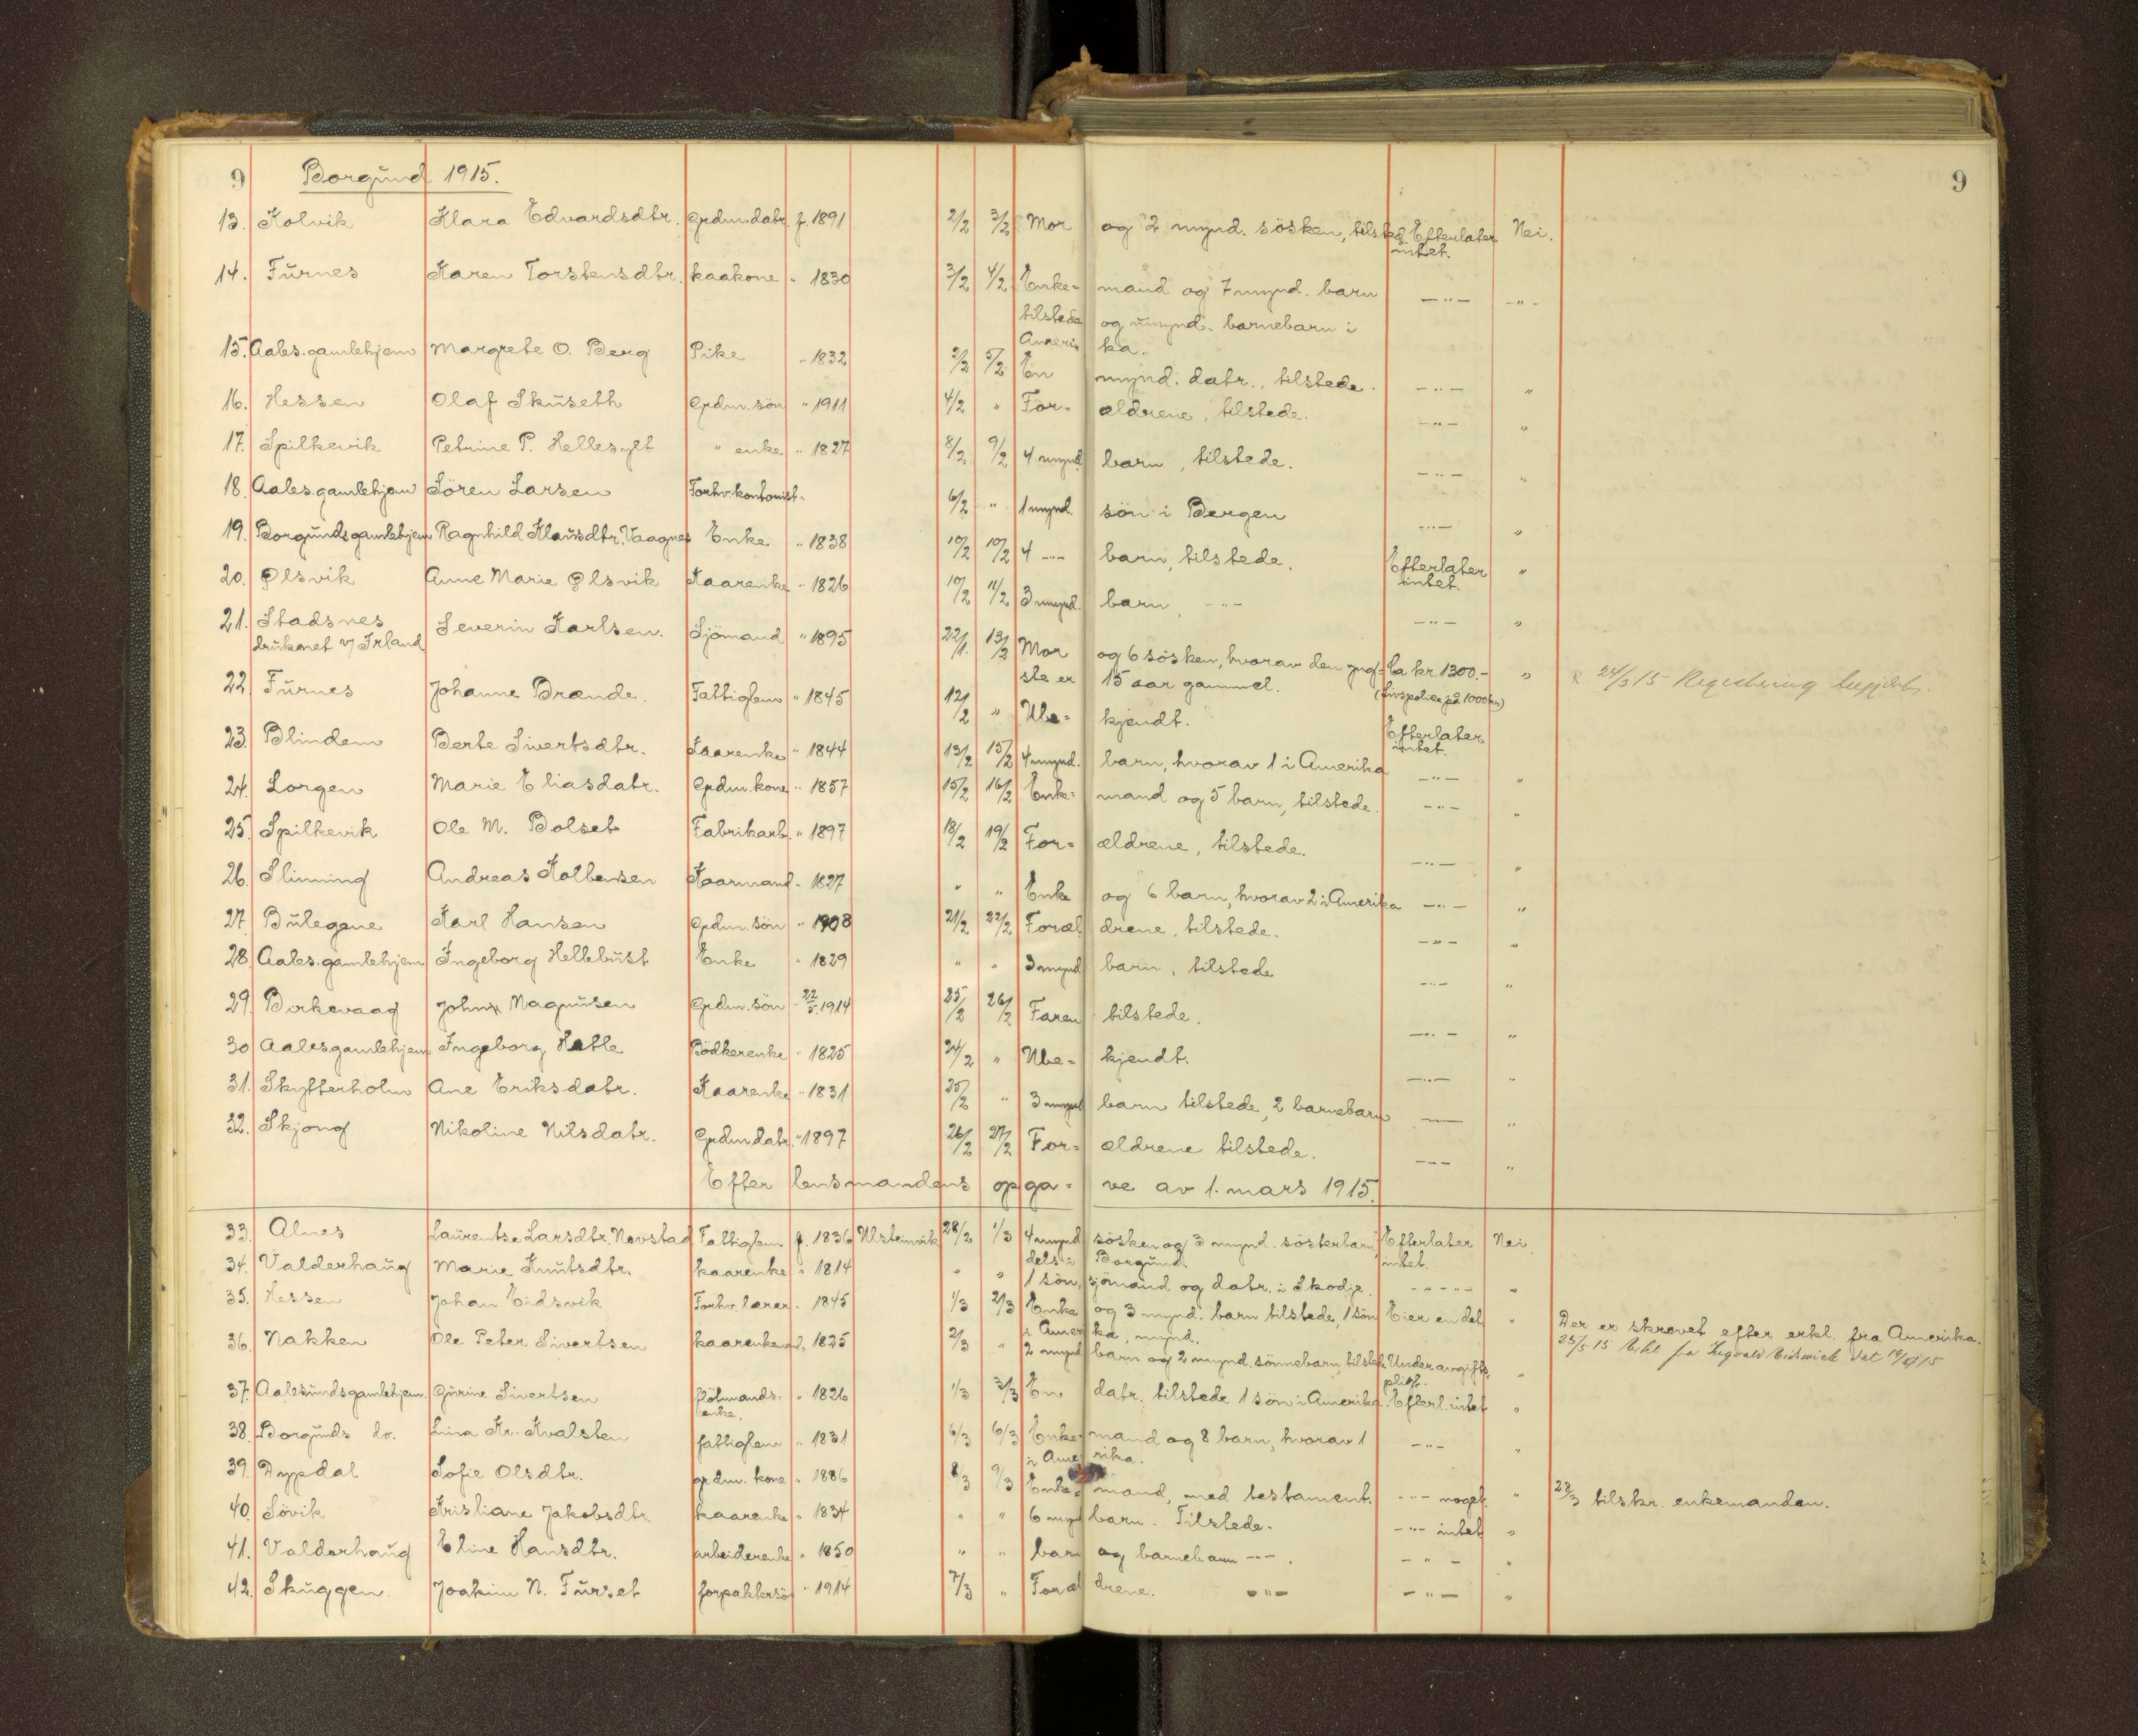 9 Borgund 1915. 9
13. Kolvik Klara Edvardsdtr. Grdm.datr. f. 1891 2/2 3/2 Mor og 2 mynd. sösken, tilsted. Efterlater intet. Nei.
14. Furnes Karen Torstensdtr. kaakone " 1830 3/2 4/2 Enke= mand og 7 mynd. barn —"— —"—
tilstede og umynd. barnebarn i
Ameri= ka.
15. Aales. gamlehjem Margrete O. Berg Pike " 1832 2/2 5/2 En mynd. datr., tilstede. —"— "
16. Hessen Olaf Skuseth Grdm. sön " 1911 4/2 " For= ældrene, tilstede. —"— "
17. Spilkevik Petrine P. Hellesylt " enke " 1827 8/2 9/2 4 mynd. barn, tilstede. —"— "
18. Aales. gamlehjem Sören Larsen Forhv. kontorist. 6/2 " 1 mynd. sön i Bergen —"— "
19. Borgunds gamlehjem Ragnhild Klausdtr. Vaagnes Enke " 1838 10/2 10/2 4 —"— barn, tilstede. Efterlater intet. "
20. Ølsvik Anne Marie Ølsvik Kaarenke " 1826 10/2 11/2 3 mynd. barn, —"— —"— "
21. Stadsnes Severin Karlsen. Sjömand " 1895 22/1. 13/2 Mor og 6 sösken, hvorav den yng= Ca kr. 1300.- " 24/3 15 Registrering begjært.
druknet v/ Irland ste er 15 aar gammel. (Livspolice på 1000 kr)
22. Furnes Johanne Brænde. Fattiglem " 1845 12/2 " Ube= kjendt. Efterlater intet.
23. Blindem Berte Sivertsdtr. Kaarenke " 1844 13/2 15/2 4 mynd. barn, hvorav 1 i Amerika —"— "
24. Lorgen Marie Eliasdatr. Grdm. kone " 1857 15/2 16/2 Enke= mand og 5 barn, tilstede. —"— "
25. Spilkevik Ole M. Bolset Fabrikarb. " 1897 18/2 19/2 For= ældrene, tilstede. —"— "
26. Slinning Andreas Kolbensen Kaarmand " 1827 " " Enke og 6 barn, hvorav 2 i Amerika —"— "
27. Bulegane Karl Hansen Grdm. sön " 1908 21/2 22/2 Foræl drene, tilstede. —"— "
28. Aales. gamlehjem Ingeborg Hellebust Enke " 1829 " " 3 mynd barn, tilstede —"— "
29. Borkevaag John Magnusen Grdm. sön " 22/5. 1914 25/2 26/2 Faren tilstede. —"— "
30 Aales gamlehjem Ingeborg Hatle Bödkerenke " 1825 24/2 " Ube= kjendt. —"— "
31. Skytterholm Ane Eriksdatr. Kaarenke " 1831 25/2 " 3 mynd barn tilstede, 2 barnebarn —"— "
32. Skjong Nikoline Nilsdatr. Grdm datr. " 1897 26/2 27/2 For= ældrene tilstede. —"— "
Efter lensmandens opga= ve av 1. mars 1915.
33. Alnes Laurentse Larsdtr. Novstad Fattiglem f. 1836 Ulsteinvik 28/2 1/3 4 mynd sösken og 3 mynd. sösterbarn, Efterlater intet. Nei
dels i Borgund.
34. Valderhaug Marie Knutsdtr. kaarenke " 1814 " " 1 sön, sjömand og datr. i Skodje. —"— "
35. Hessen Johan Eidsvik Forhv. lærer " 1845 1/3 2/3 Enke og 3 mynd. barn tilstede, 1 sön Eier en del " Der er skrevet efter erkl. fra Amerika.
i Ameri ka, mynd. 25/5 15 Erkl fra Ingvald Eidsvick dat 19/4 15
36. Nakken Ole Peter Sivertsen kaarenkemd. " 1825 2/3 " 2 mynd barn og 2 mynd. sönnebarn, tilstede Under avgifts= pligt. "
37. Aalesunds gamlehjem. Gurine Sivertsen flötmands= enke. " 1826 1/3 3/3 En datr. tilstede 1 sön i Amerika. Efterl. intet "
38. Borgunds do. Lina Kr. Kvalsten fattiglem " 1831 6/3 6/3 Enke= mand og 8 barn, hvorav 1 —"— "
i Ame rika.
39. Dypdal Sofie Olsdtr. grdm. kone " 1886 8/3 9/3 Enke= mand, med testament. —"— noget. " 23/3 tilskr. enkemanden.
40. Sövik Kristiane Jakobsdtr. kaarenke " 1834 " " 6 mynd barn. Tilstede. —"— intet "
41. Valderhaug Eline Hansdtr. arbeiderenke " 1850 " " barn og barnebarn —"—. —"— "
42. Skuggen. Joakim N. Furset forpaktersö " 1914 7/3 " Foræl drene. —"— —"— "